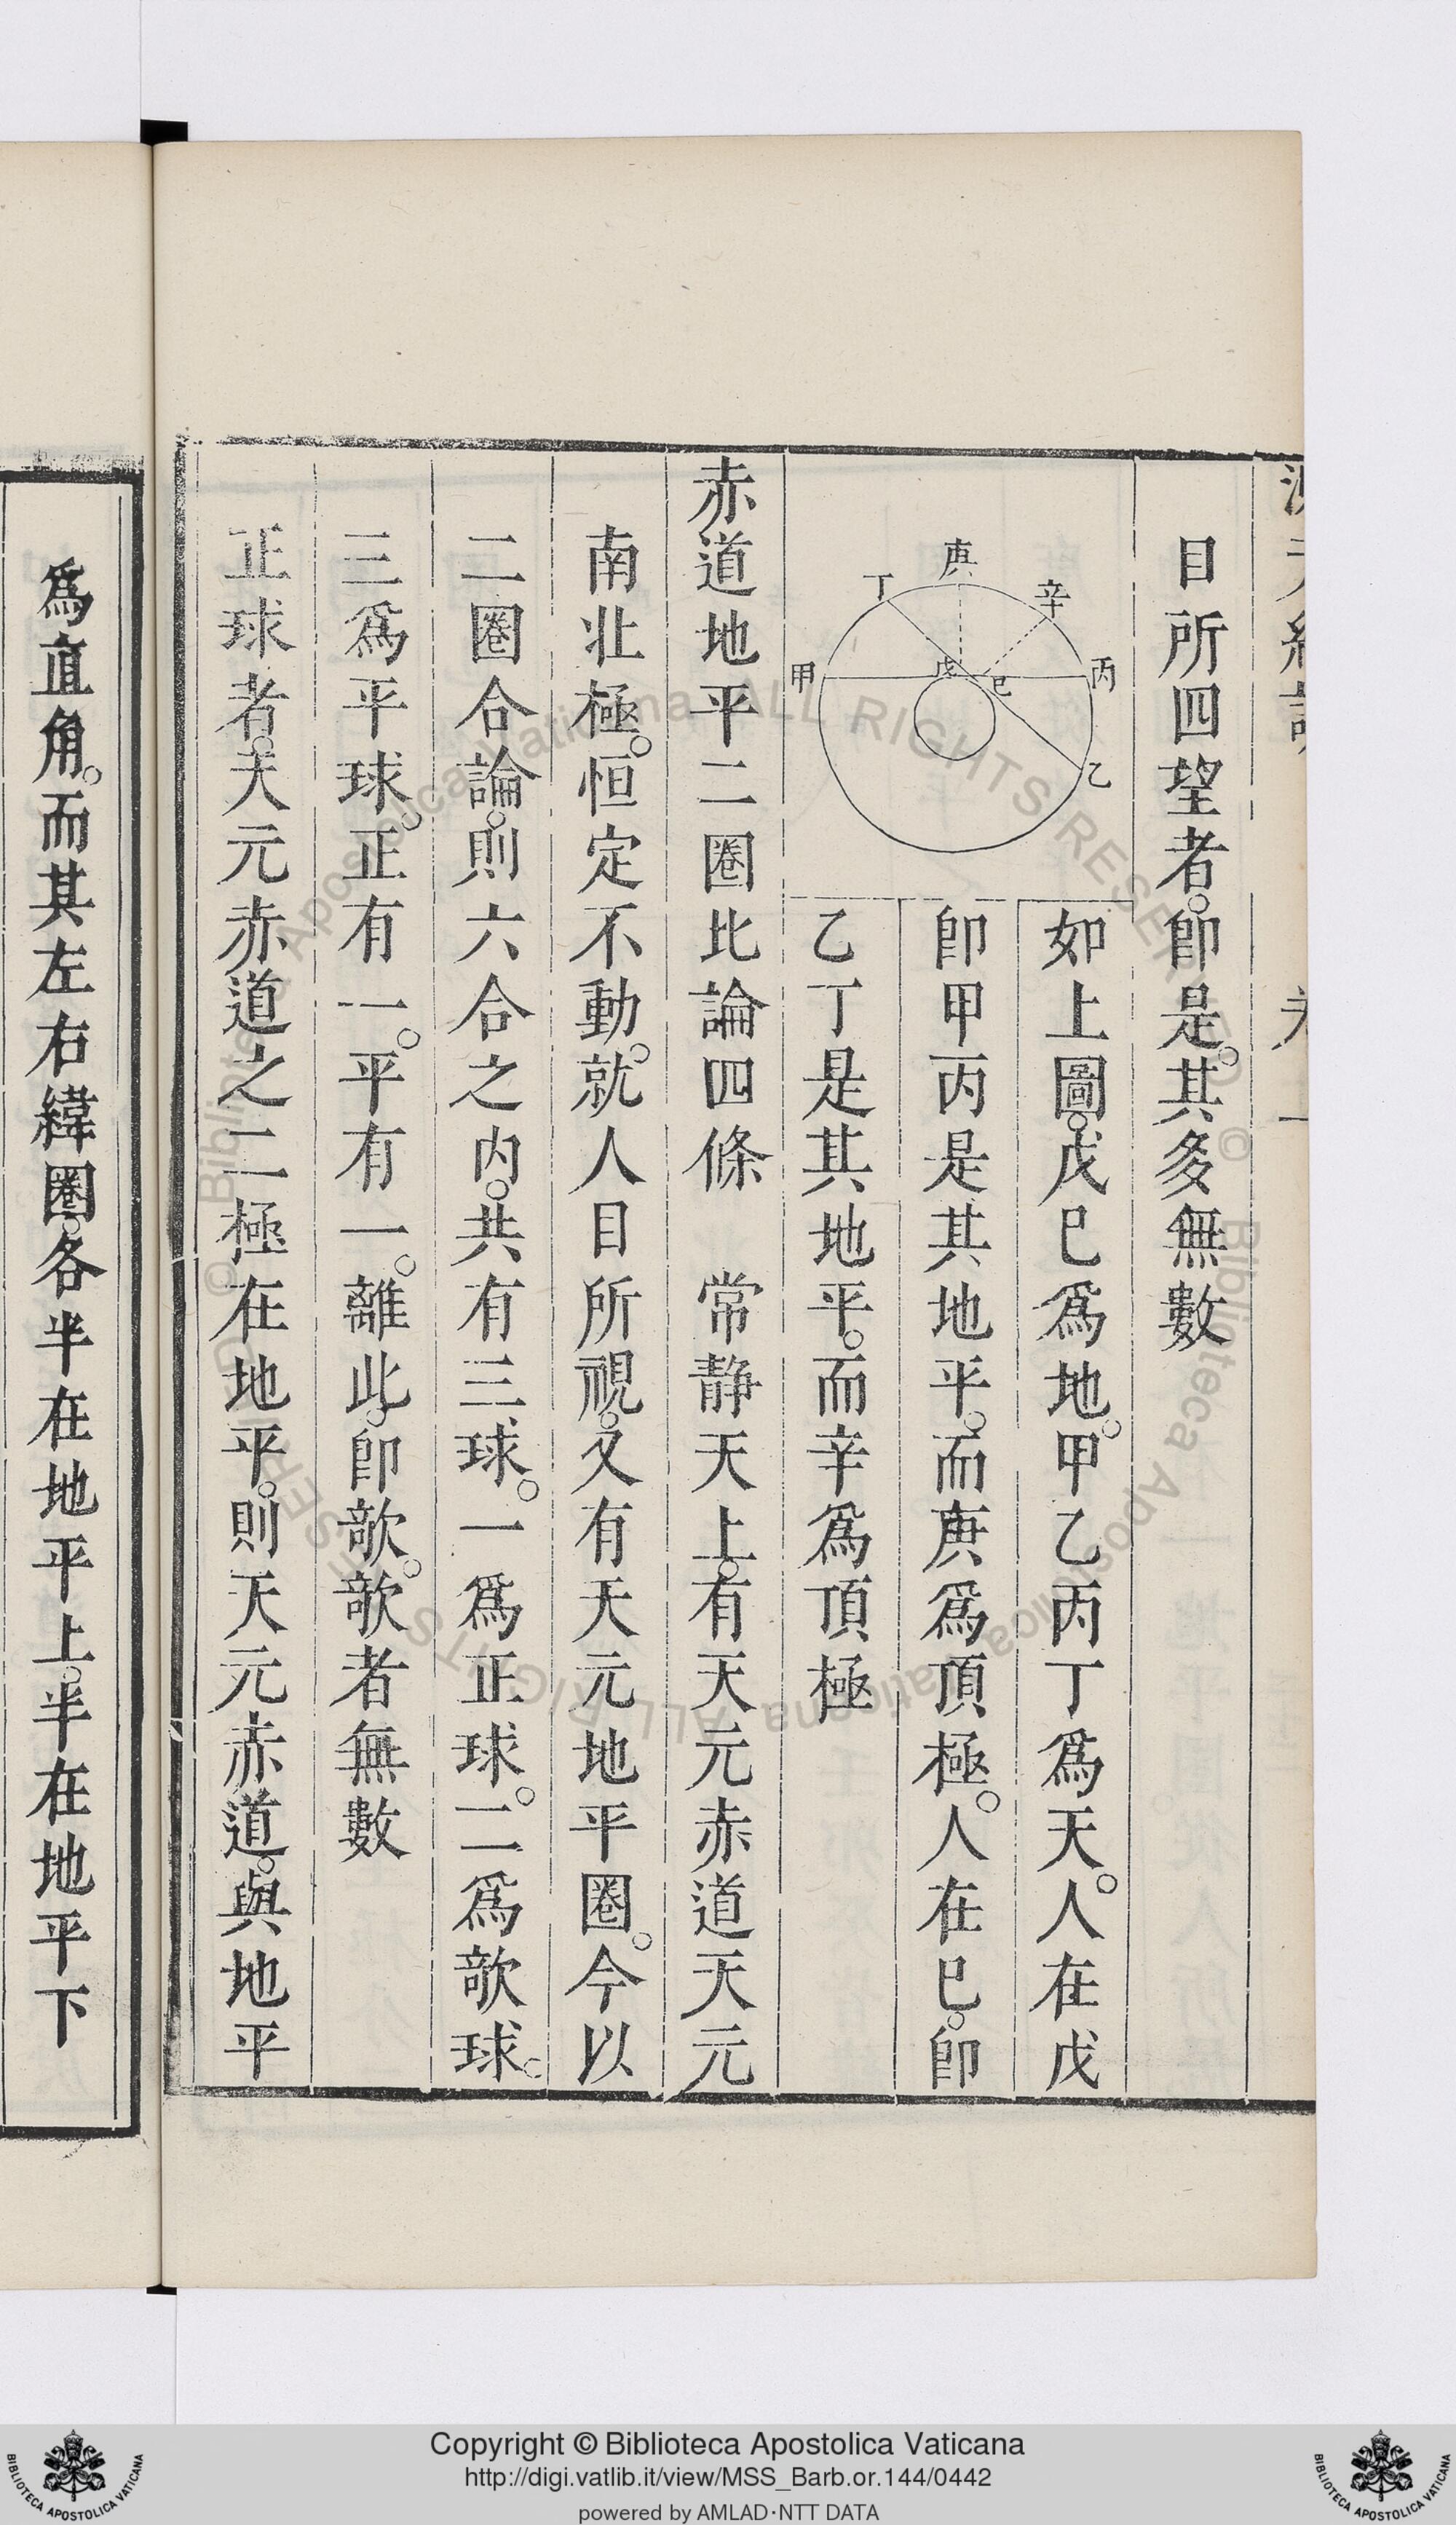 目所四望者。卽是。其多無數
庚
丁
辛
甲
戊
己
丙
乙
如上圖。戊巳爲地。甲乙丙丁爲天。人在戊
卽甲丙是其地平。而庚爲頂極。人在巳。卽
乙丁是其地平。而辛爲頂極
赤道地平二圈比論四條　常靜天上。有天元赤道天元
南北極。恒定不動。就人目所視。又有天元地平圈。今以
二圈合論。則六合之內。共有三球。一爲正球。二爲欹球。
三爲平球。正有一。平有一。離此。卽欹。欹者無數
正球者。天元赤道之二極在地平。則天元赤道。與地平
爲直角。而其左右緯圈。各半在地平上。半在地平下
© Biblioteca Apostolica Vaticana ALL RIGHTS RESERVED
Copyright © Biblioteca Apostolica Vaticana
http://digi.vatlib.it/view/MSS_Barb.or.144/0442
powered by AMLAD·NTT DATA
BIBLIOTECA APOSTOLICA VATICANA
BIBLIOTECA APOSTOLICA VATICANA